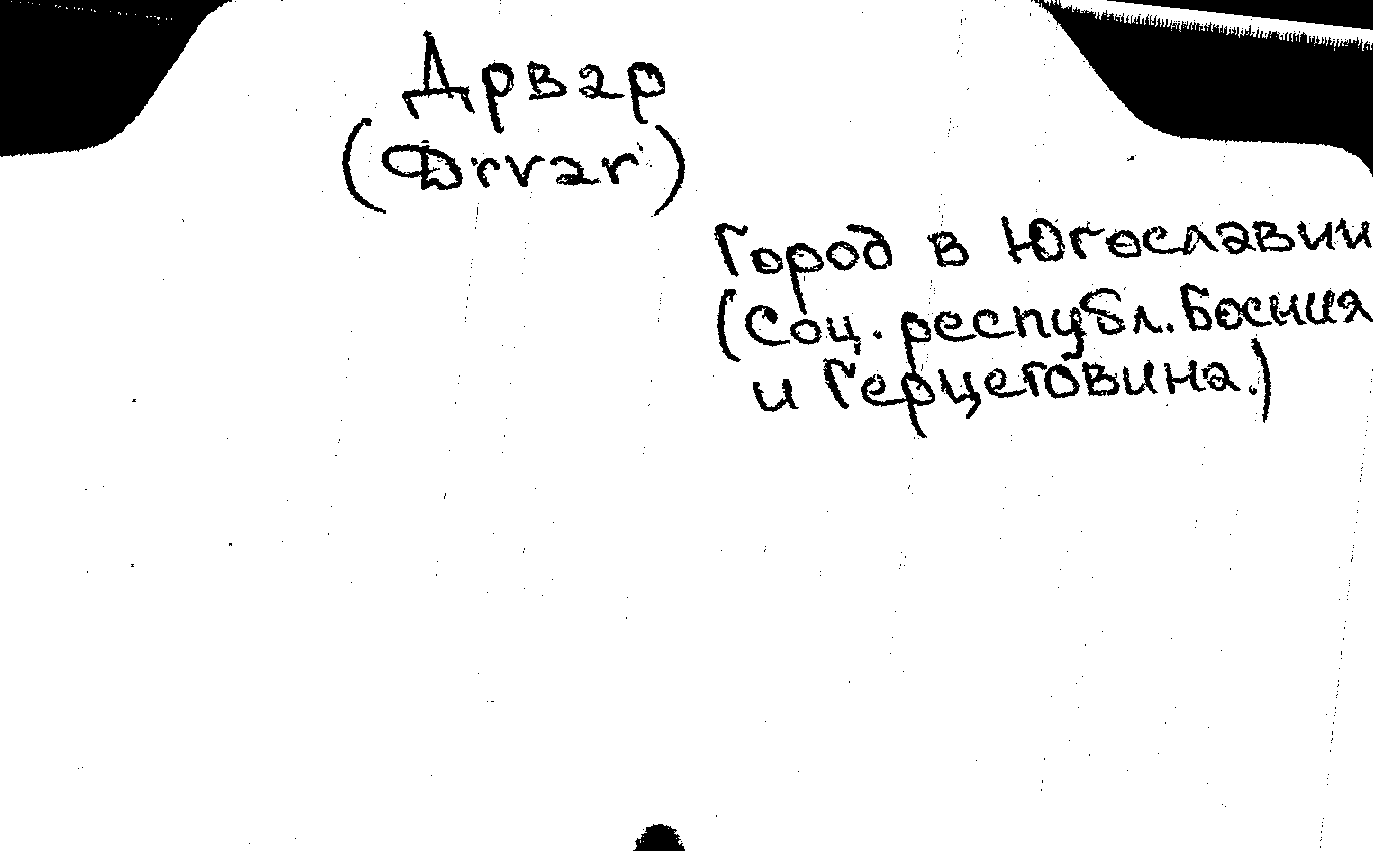 Дрвар
(Drvar)
Город в Югославии
(Соц. республ. Босния
и Герцеговина.)